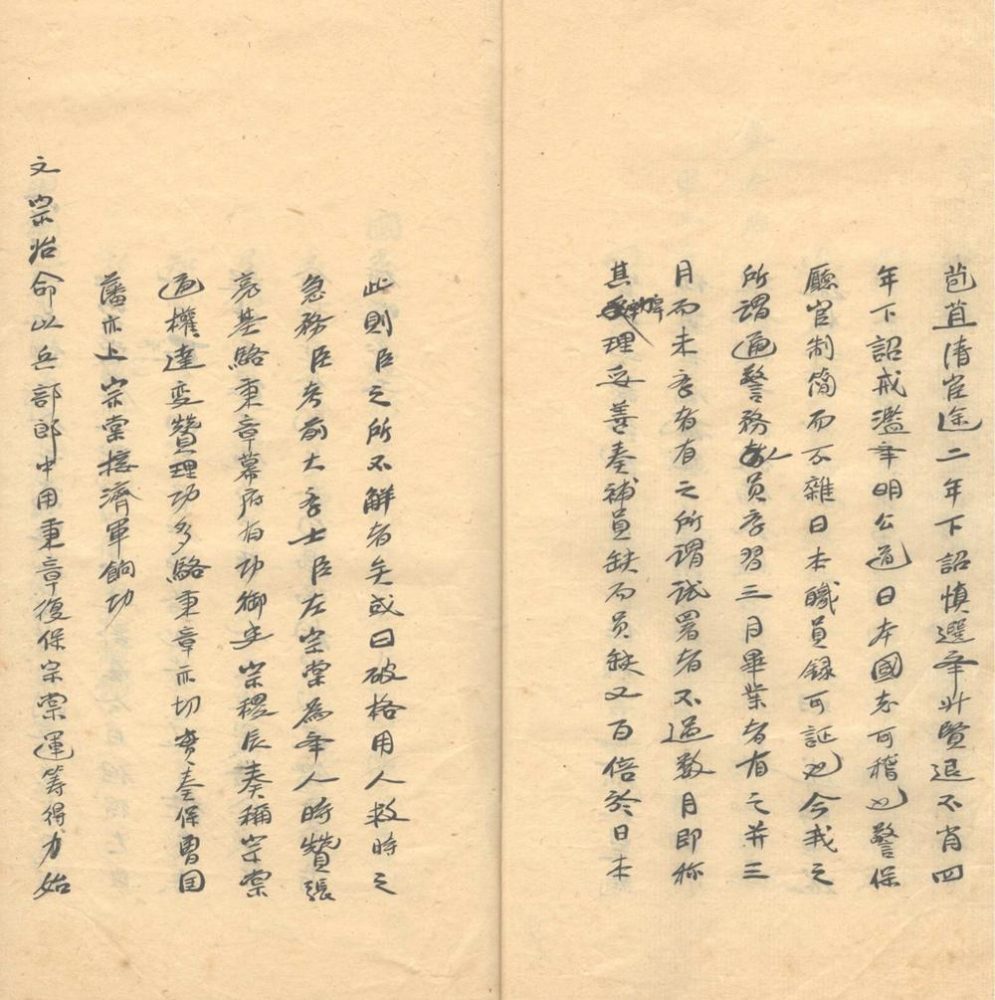 苞苴清官途二年下詔慎選舉廾賢退不肖四
年下詔戒濫舉明公道日本國志可稽也警保
廳官制簡而不雜日本職員録可証也今我之
所謂通警務人員学習三月畢業者有之并三
月而未学者有之所謂试署者不過数月即称
其辦理妥善奏補員缺而员缺又百倍於日本
此則臣之所不解者矣或曰破格用人救時之
急務臣考前大学士臣左宗棠為举人時贊張
亮基駱秉章幕府有功御史宗稷辰奏稱宗棠
通權達变贊理功多駱秉章亦切實奏保曾囯
藩亦上宗棠接濟軍餉功
文宗始命以兵部郎中用秉章復保宗棠運筹得力始